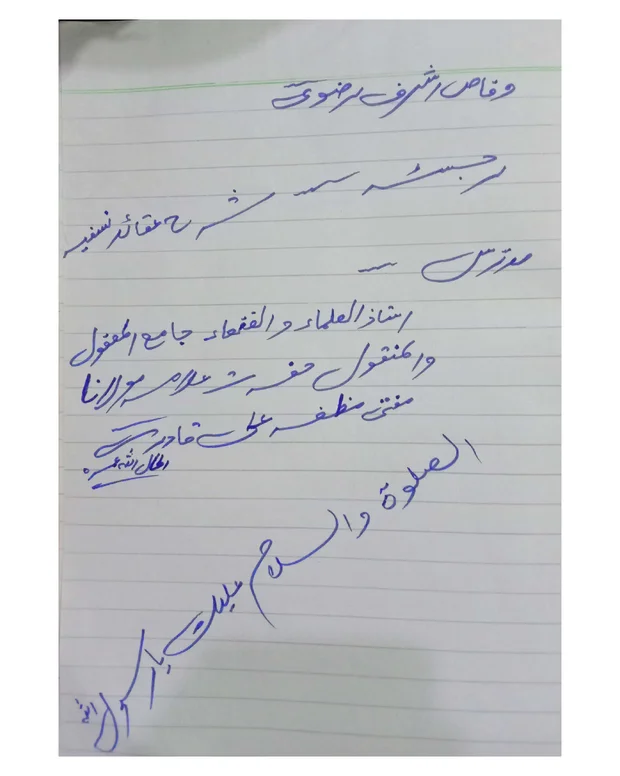 وقاص اشرف رضوی
رجسٹر — شرح عقائد نسفیہ
مدرس —
استاذ العلماء والفقھاء جامع المعقول
والمنقول حضرت علامہ مولانا
مفتی مظفر علی قادری
اطال اللہ عمرہ
الصلوۃ والسلام علیک یا رسول اللہ